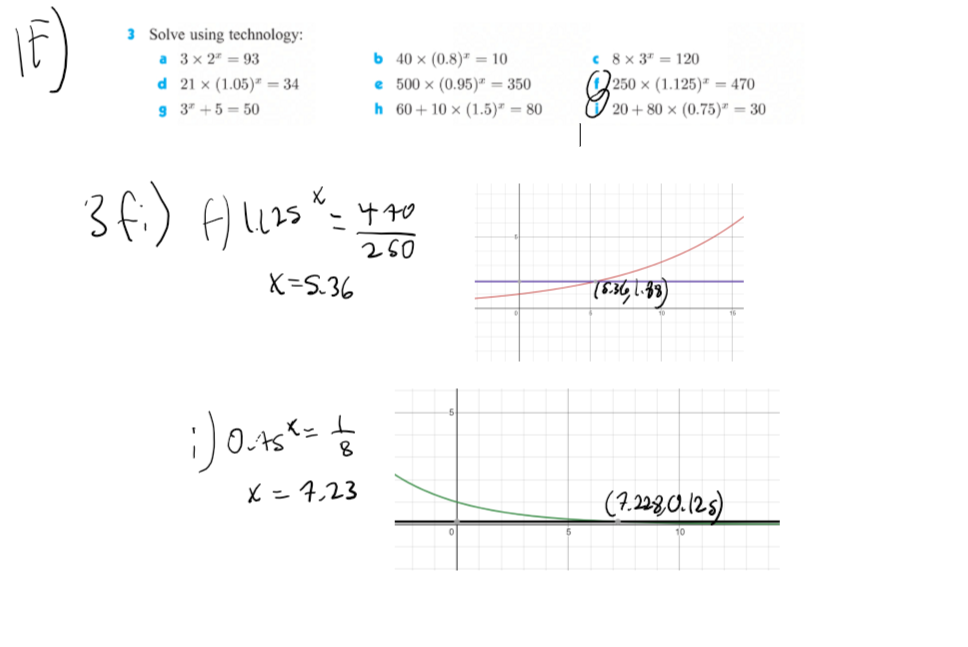 1F)
3 Solve using technology:
a 3 × 2ˣ = 93
b 40 × (0.8)ˣ = 10
c 8 × 3ˣ = 120
d 21 × (1.05)ˣ = 34
e 500 × (0.95)ˣ = 350
f 250 × (1.125)ˣ = 470
g 3ˣ + 5 = 50
h 60 + 10 × (1.5)ˣ = 80
i 20 + 80 × (0.75)ˣ = 30
3 f i) f) 1.125ˣ = 470/250
x = 5.36
5
(5.36, 1.88)
0 5 10 15
i) 0.75ˣ = 1/8
x = 7.23
5
(7.228, 0.125)
0 5 10